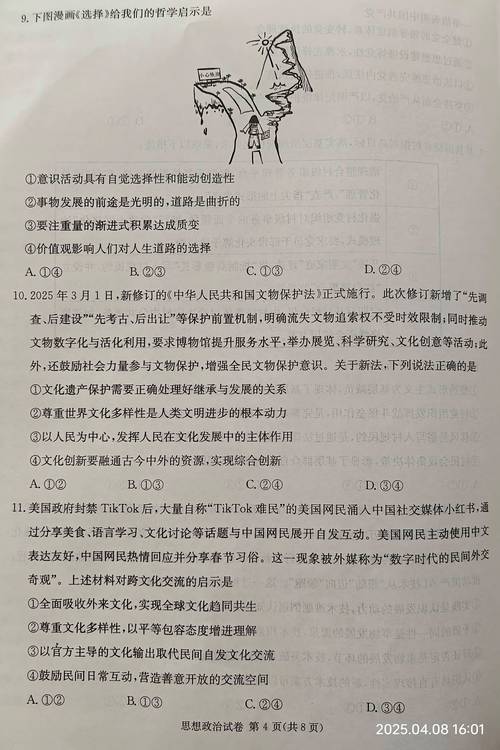 9.下图漫画《选择》给我们的哲学启示是
小心坠崖
①意识活动具有自觉选择性和能动创造性
②事物发展的前途是光明的,道路是曲折的
③要注重量的渐进式积累达成质变
④价值观影响人们对人生道路的选择
A.①④ B.②③ C.①③ D.②④
10.2025年3月1日,新修订的《中华人民共和国文物保护法》正式施行。此次修订新增了“先调
查、后建设”“先考古、后出让”等保护前置机制,明确流失文物追索权不受时效限制;同时推动
文物数字化与活化利用,要求博物馆提升服务水平,举办展览、科学研究、文化创意等活动;此
外,还鼓励社会力量参与文物保护,增强全民文物保护意识。关于新法,下列说法正确的是
①文化遗产保护需要正确处理好继承与发展的关系
②尊重世界文化多样性是人类文明进步的根本动力
③以人民为中心,发挥人民在文化发展中的主体作用
④文化创新要融通古今中外的资源,实现综合创新
A.①② B.①③ C.②④ D.③④
11.美国政府封禁TikTok后,大量自称“TikTok难民”的美国网民涌入中国社交媒体小红书,通
过分享美食、语言学习、文化讨论等话题与中国网民展开自发互动。美国网民主动使用中文
表达友好,中国网民热情回应并分享春节习俗。这一现象被外媒称为“数字时代的民间外交
奇观”。上述材料对跨文化交流的启示是
①全面吸收外来文化,实现全球文化趋同共生
②尊重文化多样性,以平等包容态度增进理解
③以官方主导的文化输出取代民间自发文化交流
④鼓励民间日常互动,营造善意开放的交流空间
A.①② B.①③ C.②④ D.③④
思想政治试卷 第4页(共8页)
2025.04.08 16:01